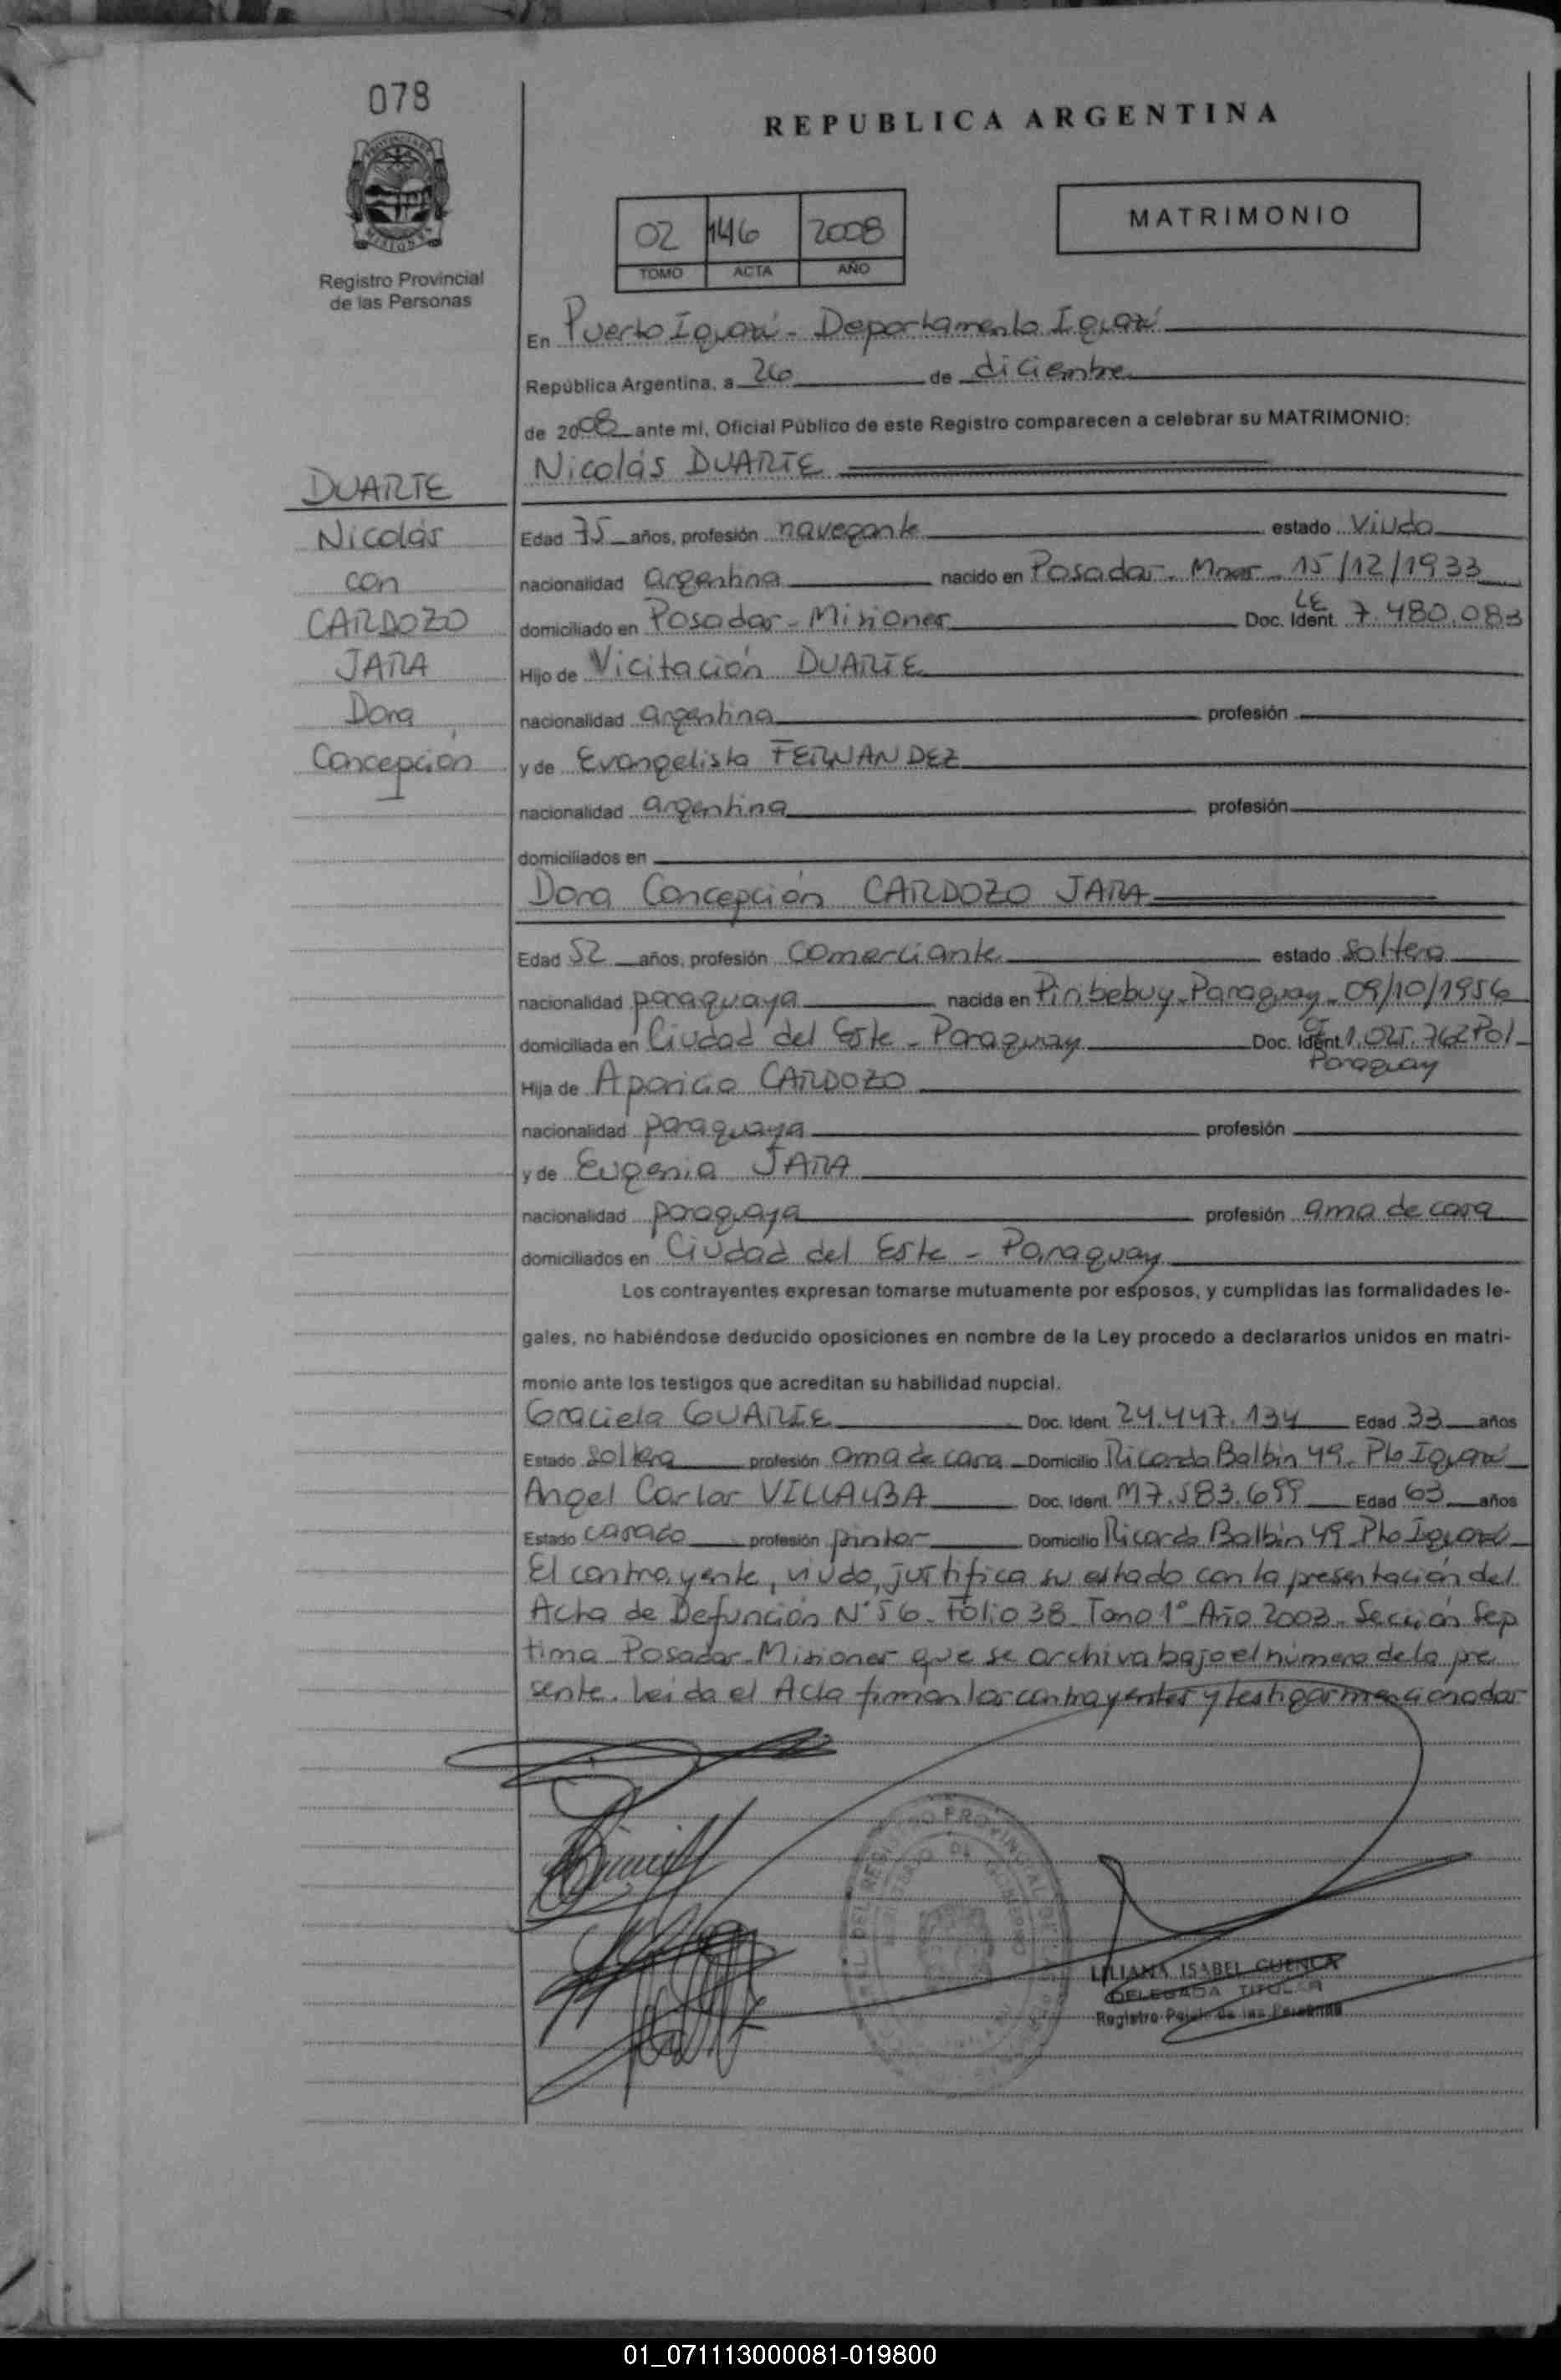 078
REPUBLICA ARGENTINA
Registro Provincial
de las Personas
02 146 2008
TOMO ACTA AÑO
MATRIMONIO
En Puerto Iguazú - Departamento Iguazú
República Argentina, a 26 de diciembre
de 2008 ante mí, Oficial Público de este Registro comparecen a celebrar su MATRIMONIO:
Nicolás DUARTE
DUARTE
Nicolás
con
CARDOZO
JARA
Dora
Concepción
Edad 75 años, profesión navegante estado viudo
nacionalidad argentina nacido en Posadas - Mnes - 15/12/1933
domiciliado en Posadas - Misiones Doc. Ident. LE 7.480.083
Hijo de Vicitación DUARTE
nacionalidad argentina profesión
y de Evangelista FERNANDEZ
nacionalidad argentina profesión
domiciliados en
Dora Concepción CARDOZO JARA
Edad 52 años, profesión comerciante estado soltera
nacionalidad paraguaya nacida en Piribebuy - Paraguay - 09/10/1956
domiciliada en Ciudad del Este - Paraguay Doc. Ident. 1.025.762 Pol
Paraguay
Hija de Aparicio CARDOZO
nacionalidad paraguaya profesión
y de Eugenia JARA
nacionalidad paraguaya profesión ama de casa
domiciliados en Ciudad del Este - Paraguay
Los contrayentes expresan tomarse mutuamente por esposos, y cumplidas las formalidades le-
gales, no habiéndose deducido oposiciones en nombre de la Ley procedo a declararlos unidos en matri-
monio ante los testigos que acreditan su habilidad nupcial.
Graciela DUARTE Doc. Ident. 24.447.134 Edad 33 años
Estado soltera profesión ama de casa Domicilio Ricardo Balbin 49 - Pto Iguazú
Angel Carlos VILLALBA Doc. Ident. M7.583.699 Edad 63 años
Estado casado profesión pintor Domicilio Ricardo Balbin 49 - Pto Iguazú
El contrayente, viudo, justifica su estado con la presentación del
Acta de Defunción N° 56 - Folio 38 - Tomo 1° Año 2003 - Sección Sep
tima - Posadas - Misiones que se archiva bajo el número de la pre
sente. Leida el Acta firman los contrayentes y testigos mencionados
LILIANA ISABEL CUENCA
DELEGADA TITULAR
Registro Pcial. de las Personas
01_071113000081-019800